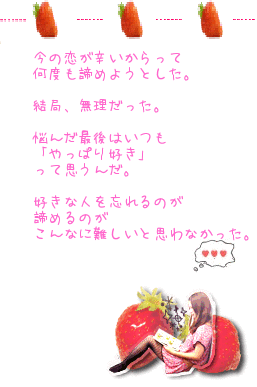 今の恋が辛いからって
何度も諦めようとした。
結局、無理だった。
悩んだ最後はいつも
「やっぱり好き」
って思うんだ。
好きな人を忘れるのが
諦めるのが
こんなに難しいと思わなかった。